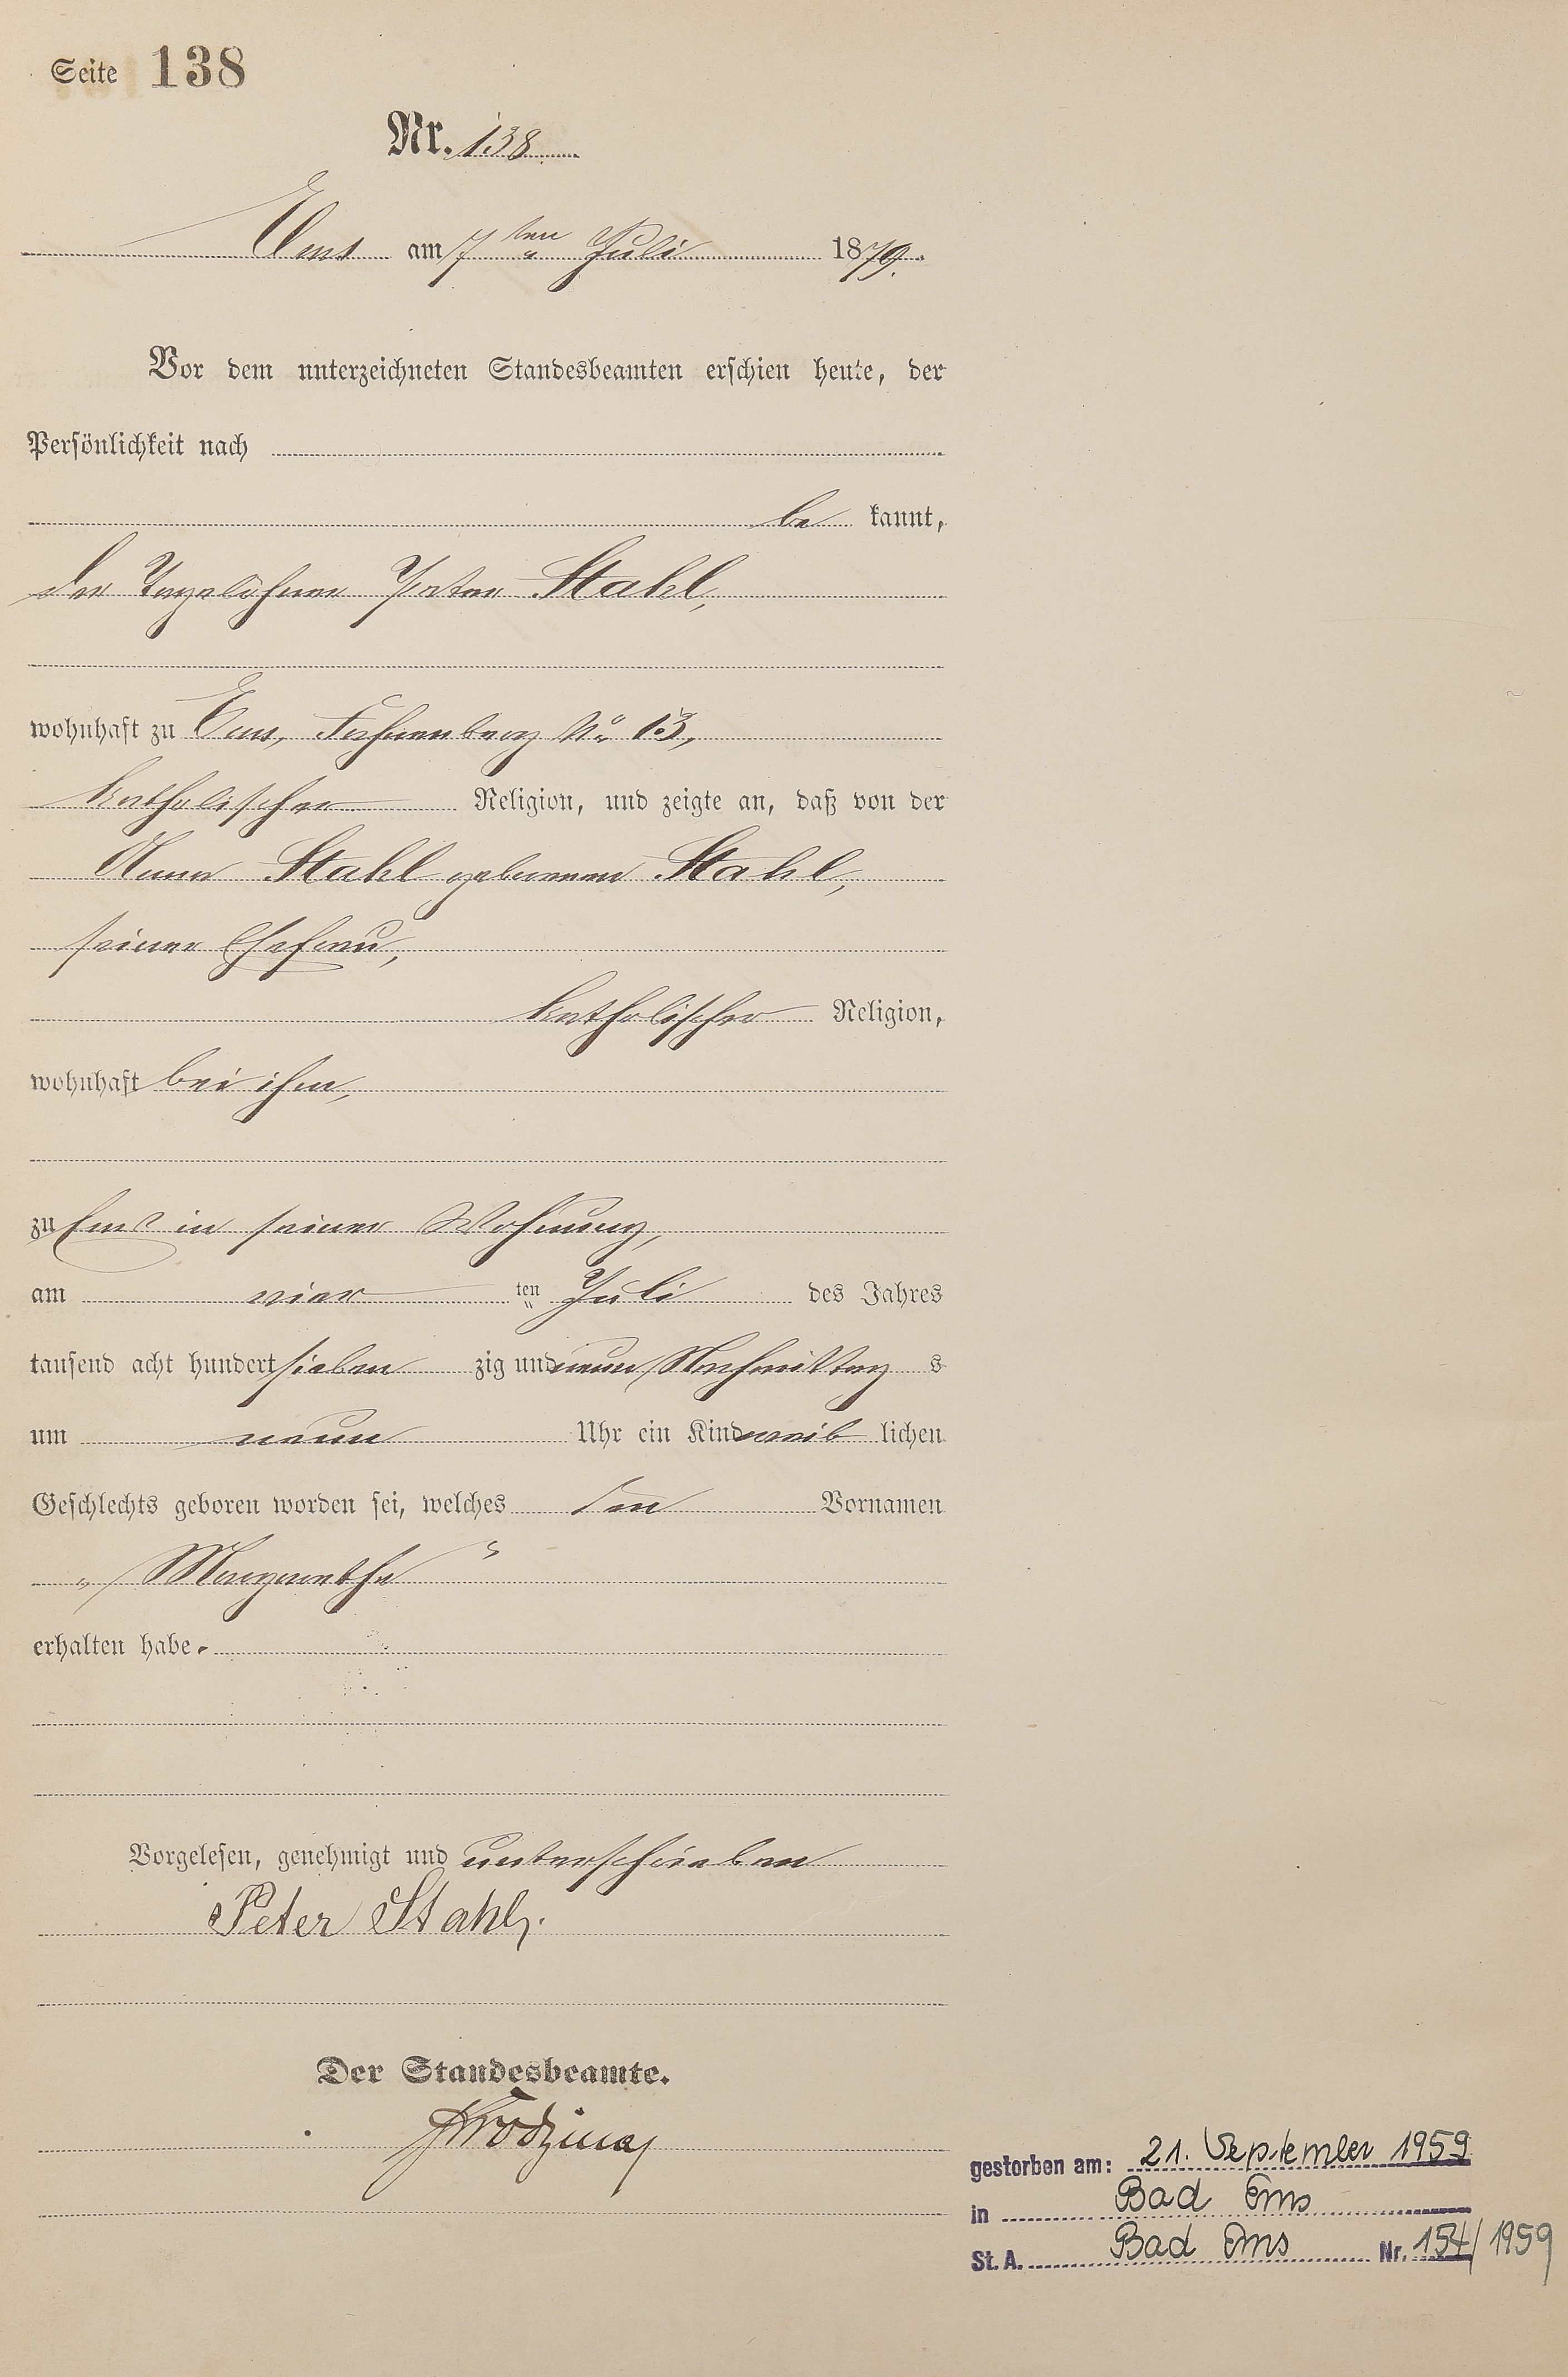 Seite 138
Nr. 138
Ems am 7ten Juli 1879.
Vor dem unterzeichneten Standesbeamten erschien heute, der
Persönlichkeit nach
be kannt,
der Tagelöhner Peter Stahl,
wohnhaft zu Ems, No 13,
katholischer Religion, und zeigte an, daß von der
Anna Stahl geborenen Stahl,
seiner Ehefrau,
katholischer Religion,
wohnhaft bei ihm,
zu Ems in seiner Wohnung,
am vier ten Juli des Jahres
tausend acht hundert sieben zig und neun Nachmittag s
um neun Uhr ein Kind weib lichen
Geschlechts geboren worden sei, welches den Vornamen
„Margaretha“
erhalten habe.
Vorgelesen, genehmigt und unterschrieben
Peter Stahl.
Der Standesbeamte.
gestorben am: 21. September 1959
in Bad Ems
St. A. Bad Ems Nr. 154/1959